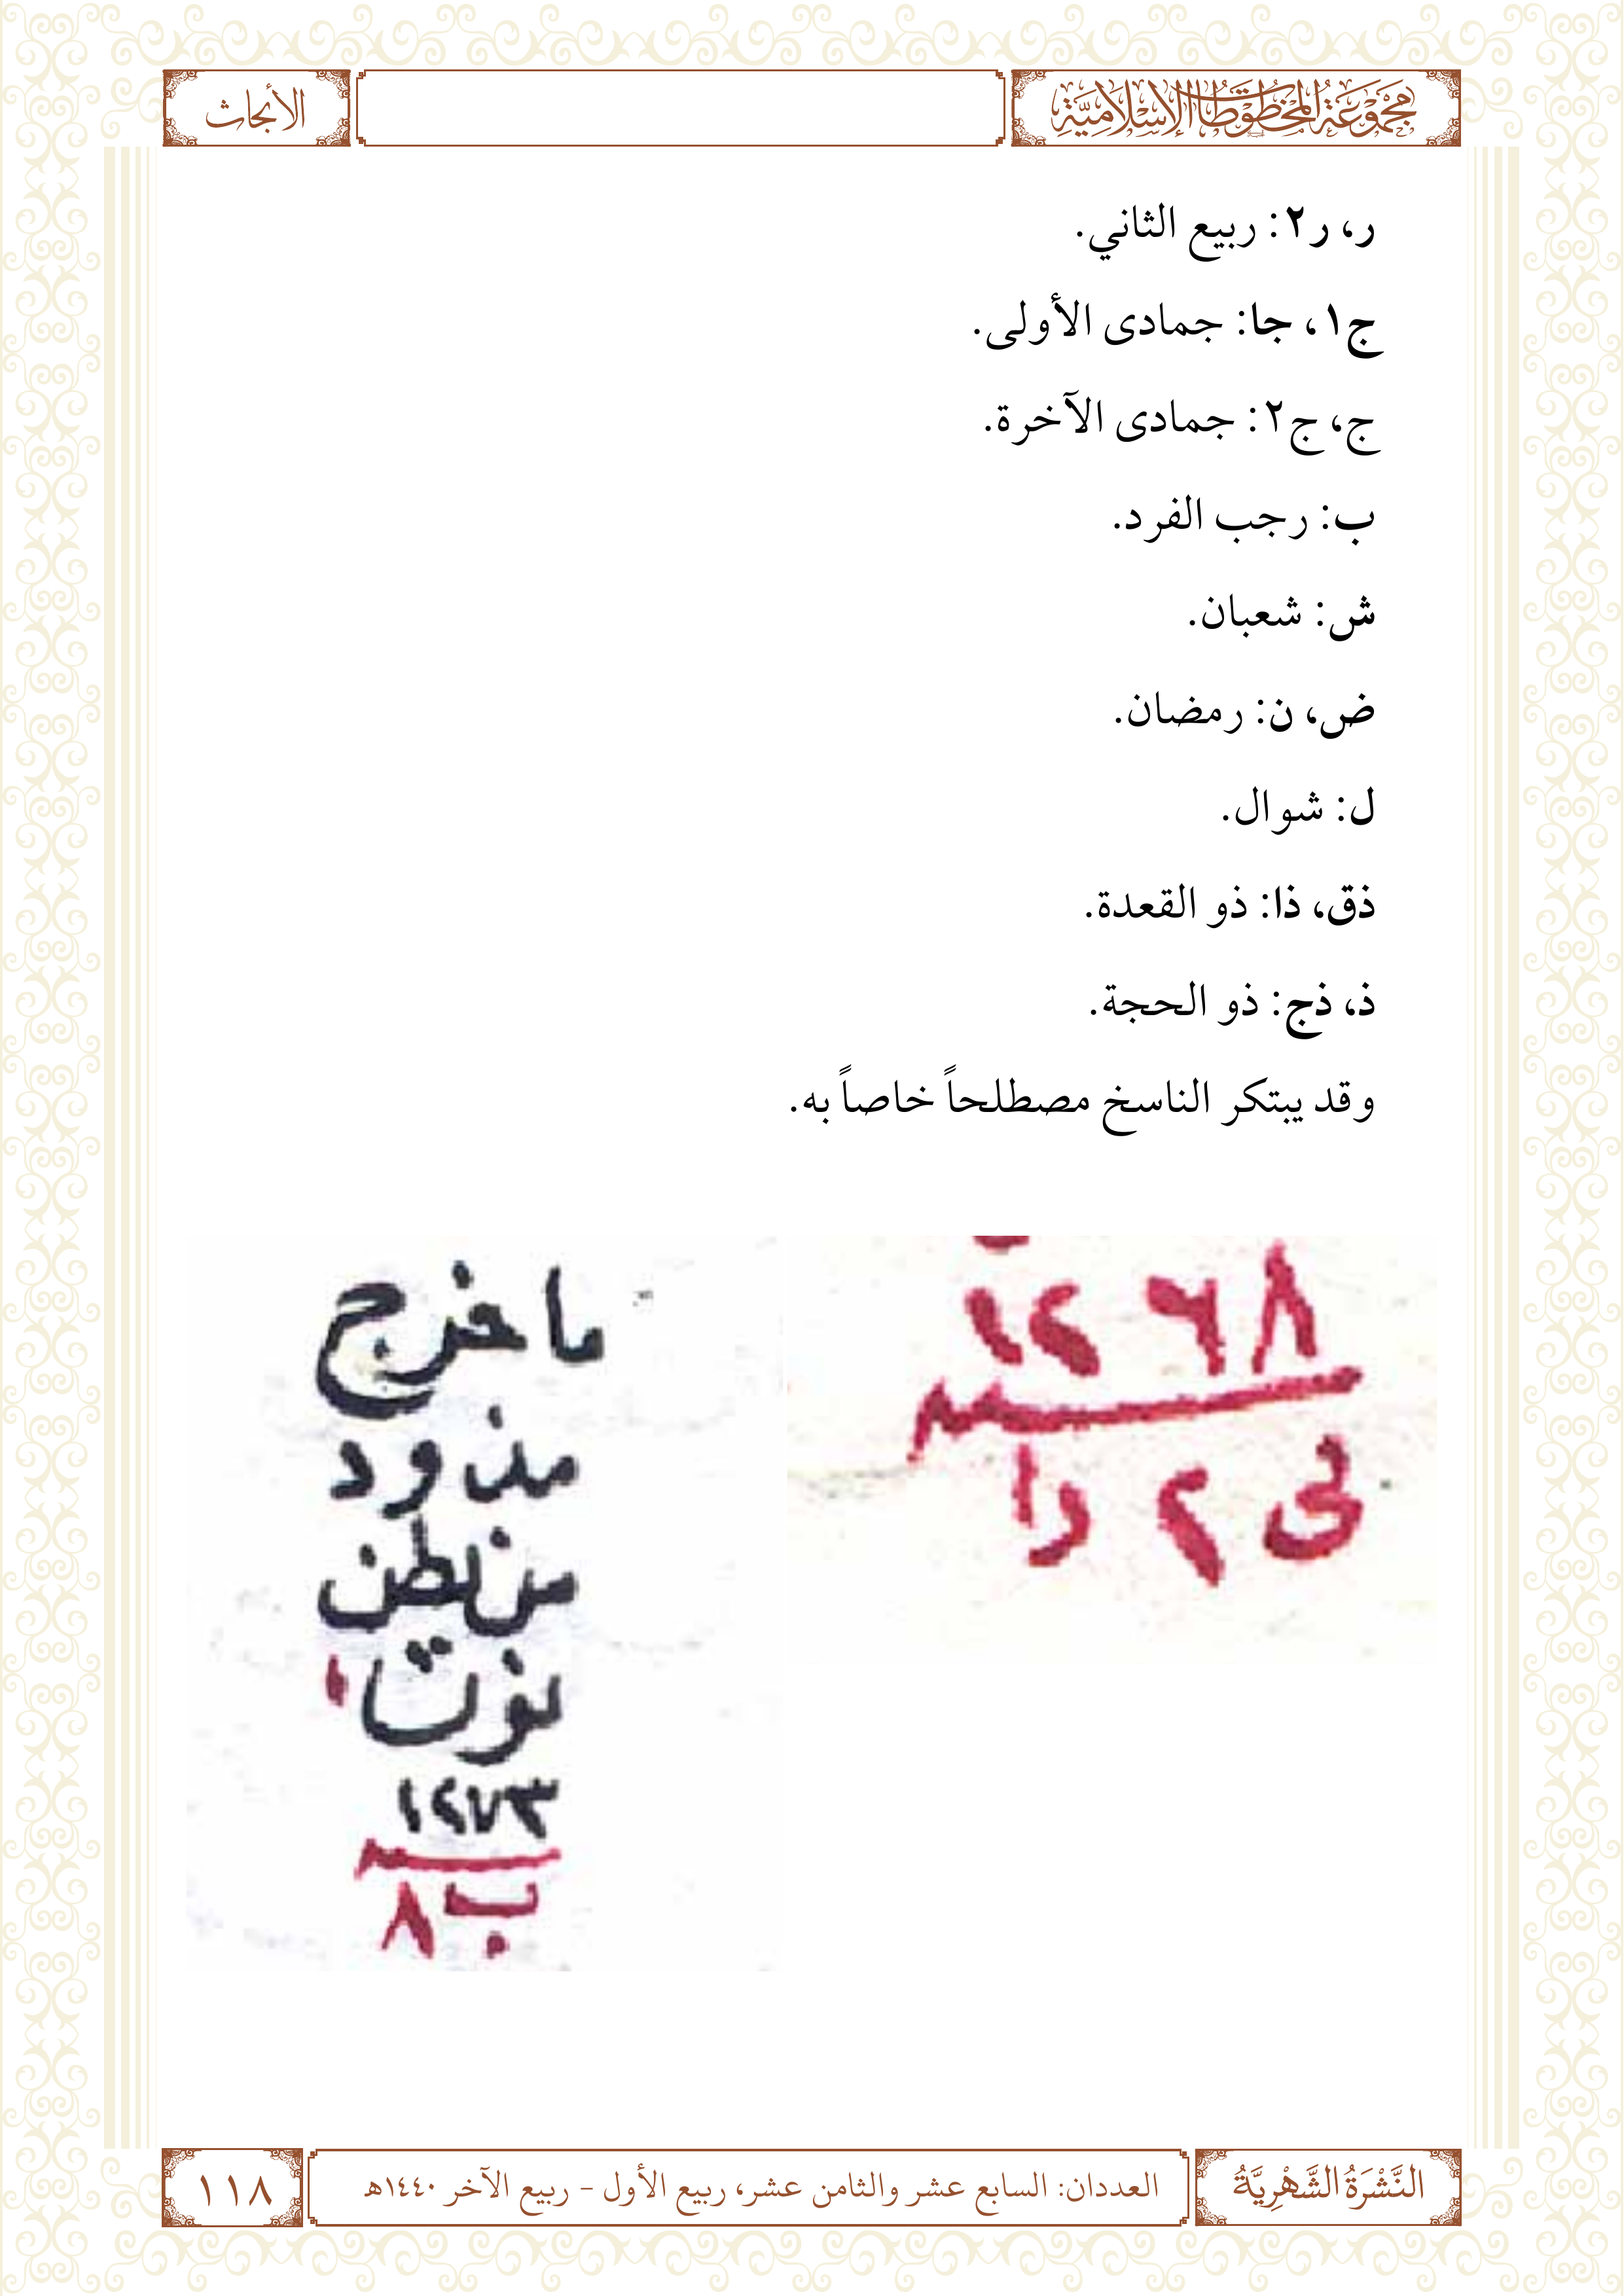 مجموعة المخطوطات الإسلامية
الأبحاث
ر، ر٢: ربيع الثاني.
ج١، جا: جمادى الأولى.
ج، ج٢: جمادى الآخرة.
ب: رجب الفرد.
ش: شعبان.
ض، ن: رمضان.
ل: شوال.
ذق، ذا: ذو القعدة.
ذ، ذج: ذو الحجة.
وقد يبتكر الناسخ مصطلحاً خاصاً به.
١٢٦٨
٢
را
ما خرج
من
١٢٧٣
ب ٨
النَّشْرَةُ الشَّهْرِيَّةُ
العددان: السابع عشر والثامن عشر، ربيع الأول - ربيع الآخر ١٤٤٠هـ
١١٨